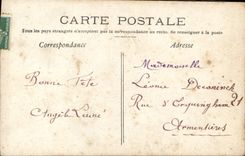 CARTE POSTALE
Tous les pays étrangers n'acceptent pas la correspondance au recto. Se renseigner à la poste
Correspondance
Adresse
Mademoiselle
Bonne Fête
Léonie Deconinck
Rue d'Erquinghem 21
Armentières